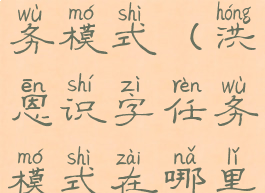 wù mó shì hóng
务模式（洪
ēn shí zì rèn wù
恩识字任务
mó shì zài nǎ lǐ
模式在哪里